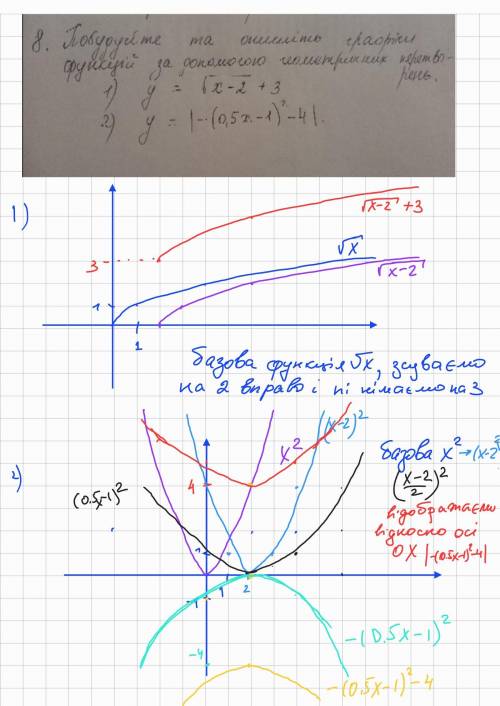 8. Побудуйте та опишіть графіки
функцій за допомогою геометричних перетво-
рень.
1) y = √x-2 + 3
2) y = |-(0,5x-1)² -4|.
1)
√x-2 +3
3
√x
√x-2
1
1
базова функція √x, зсуваємо
на 2 вправо і піднімаємо на 3
2)
x²
(x-2)²
базова x² → (x-2)²
(x-2/2)²
(0.5x-1)²
4
відображаємо
відносно осі
OX |-(0.5x-1)²-4|
1
1
2
-1
-(0.5x-1)²
-4
-(0.5x-1)²-4